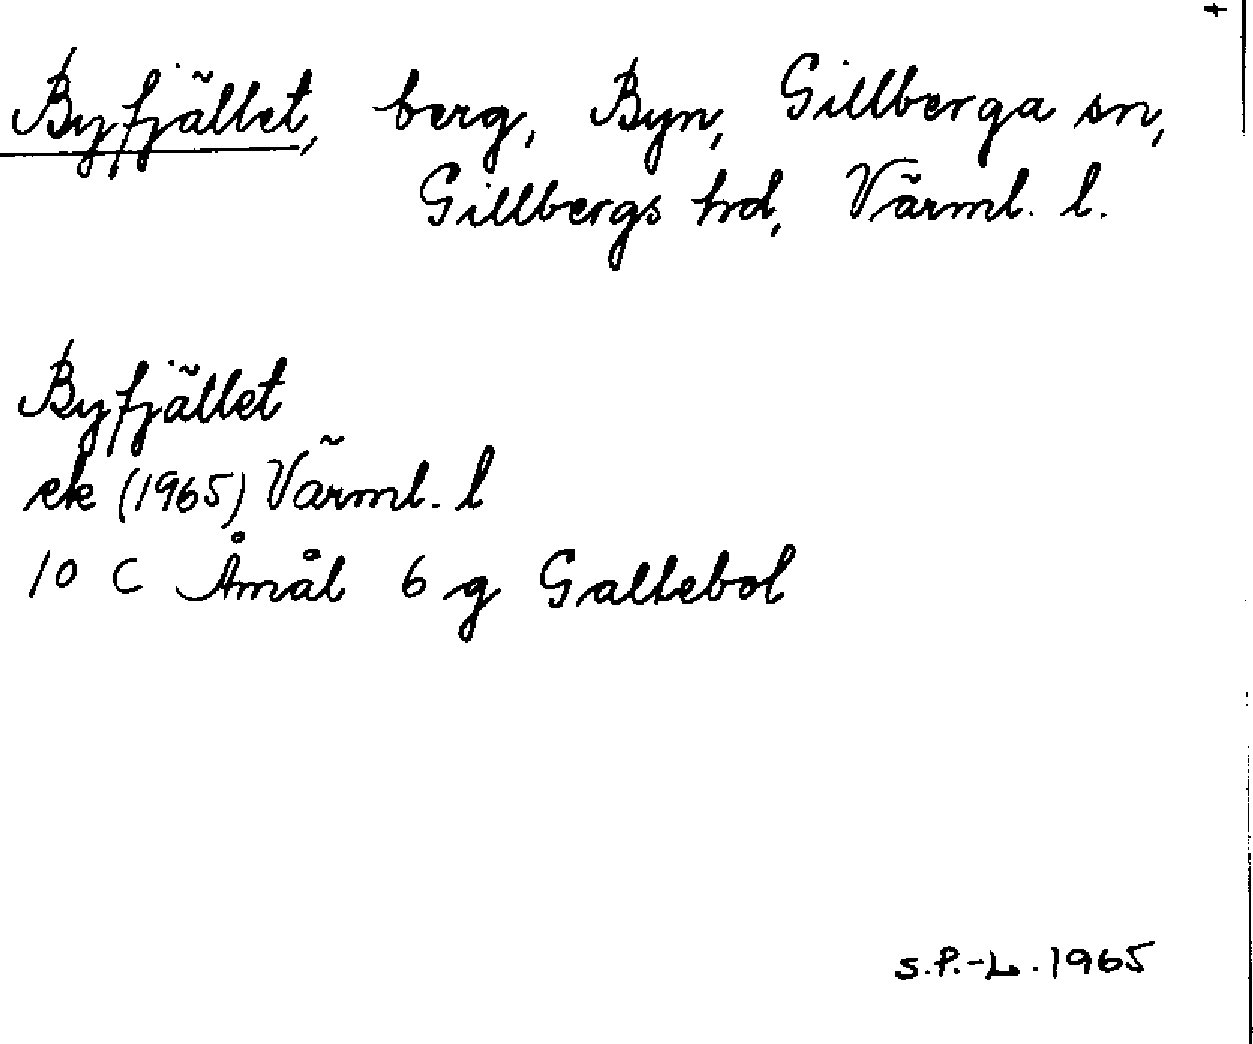 Byfjället, berg, Byn, Gillberga sn,
Gillbergs hd, Värml. l.
Byfjället
ek (1965) Värml. l
10 C Åmål 6 g Galtebol
S.P.-L. 1965